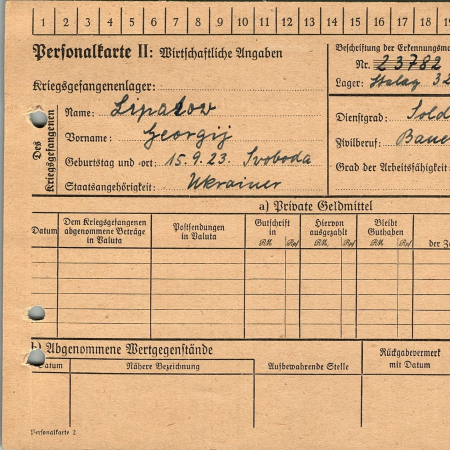 1 2 3 4 5 6 7 8 9 10 11 12 13 14 15 16 17 18 19
Personalkarte II: Wirtschaftliche Angaben
Beschriftung der Erkennungsma
Nr. 23782
Kriegsgefangenenlager:
Lager: Stalag 32
Des Kriegsgefangenen
Name: Lipatow
Vorname: Georgij
Geburtstag und -ort: 15.9.23. Svoboda
Staatsangehörigkeit: Ukrainer
Dienstgrad: Sold
Zivilberuf: Baue
Grad der Arbeitsfähigkeit:
a) Private Geldmittel
Datum
Dem Kriegsgefangenen abgenommene Beträge in Valuta
Postsendungen in Valuta
Gutschrift in
RM Rpf
Hiervon ausgezahlt
RM Rpf
Bleibt Guthaben
RM Rpf
der Za
b) Abgenommene Wertgegenstände
Datum
Nähere Bezeichnung
Aufbewahrende Stelle
Rückgabevermerk mit Datum
Personalkarte 2